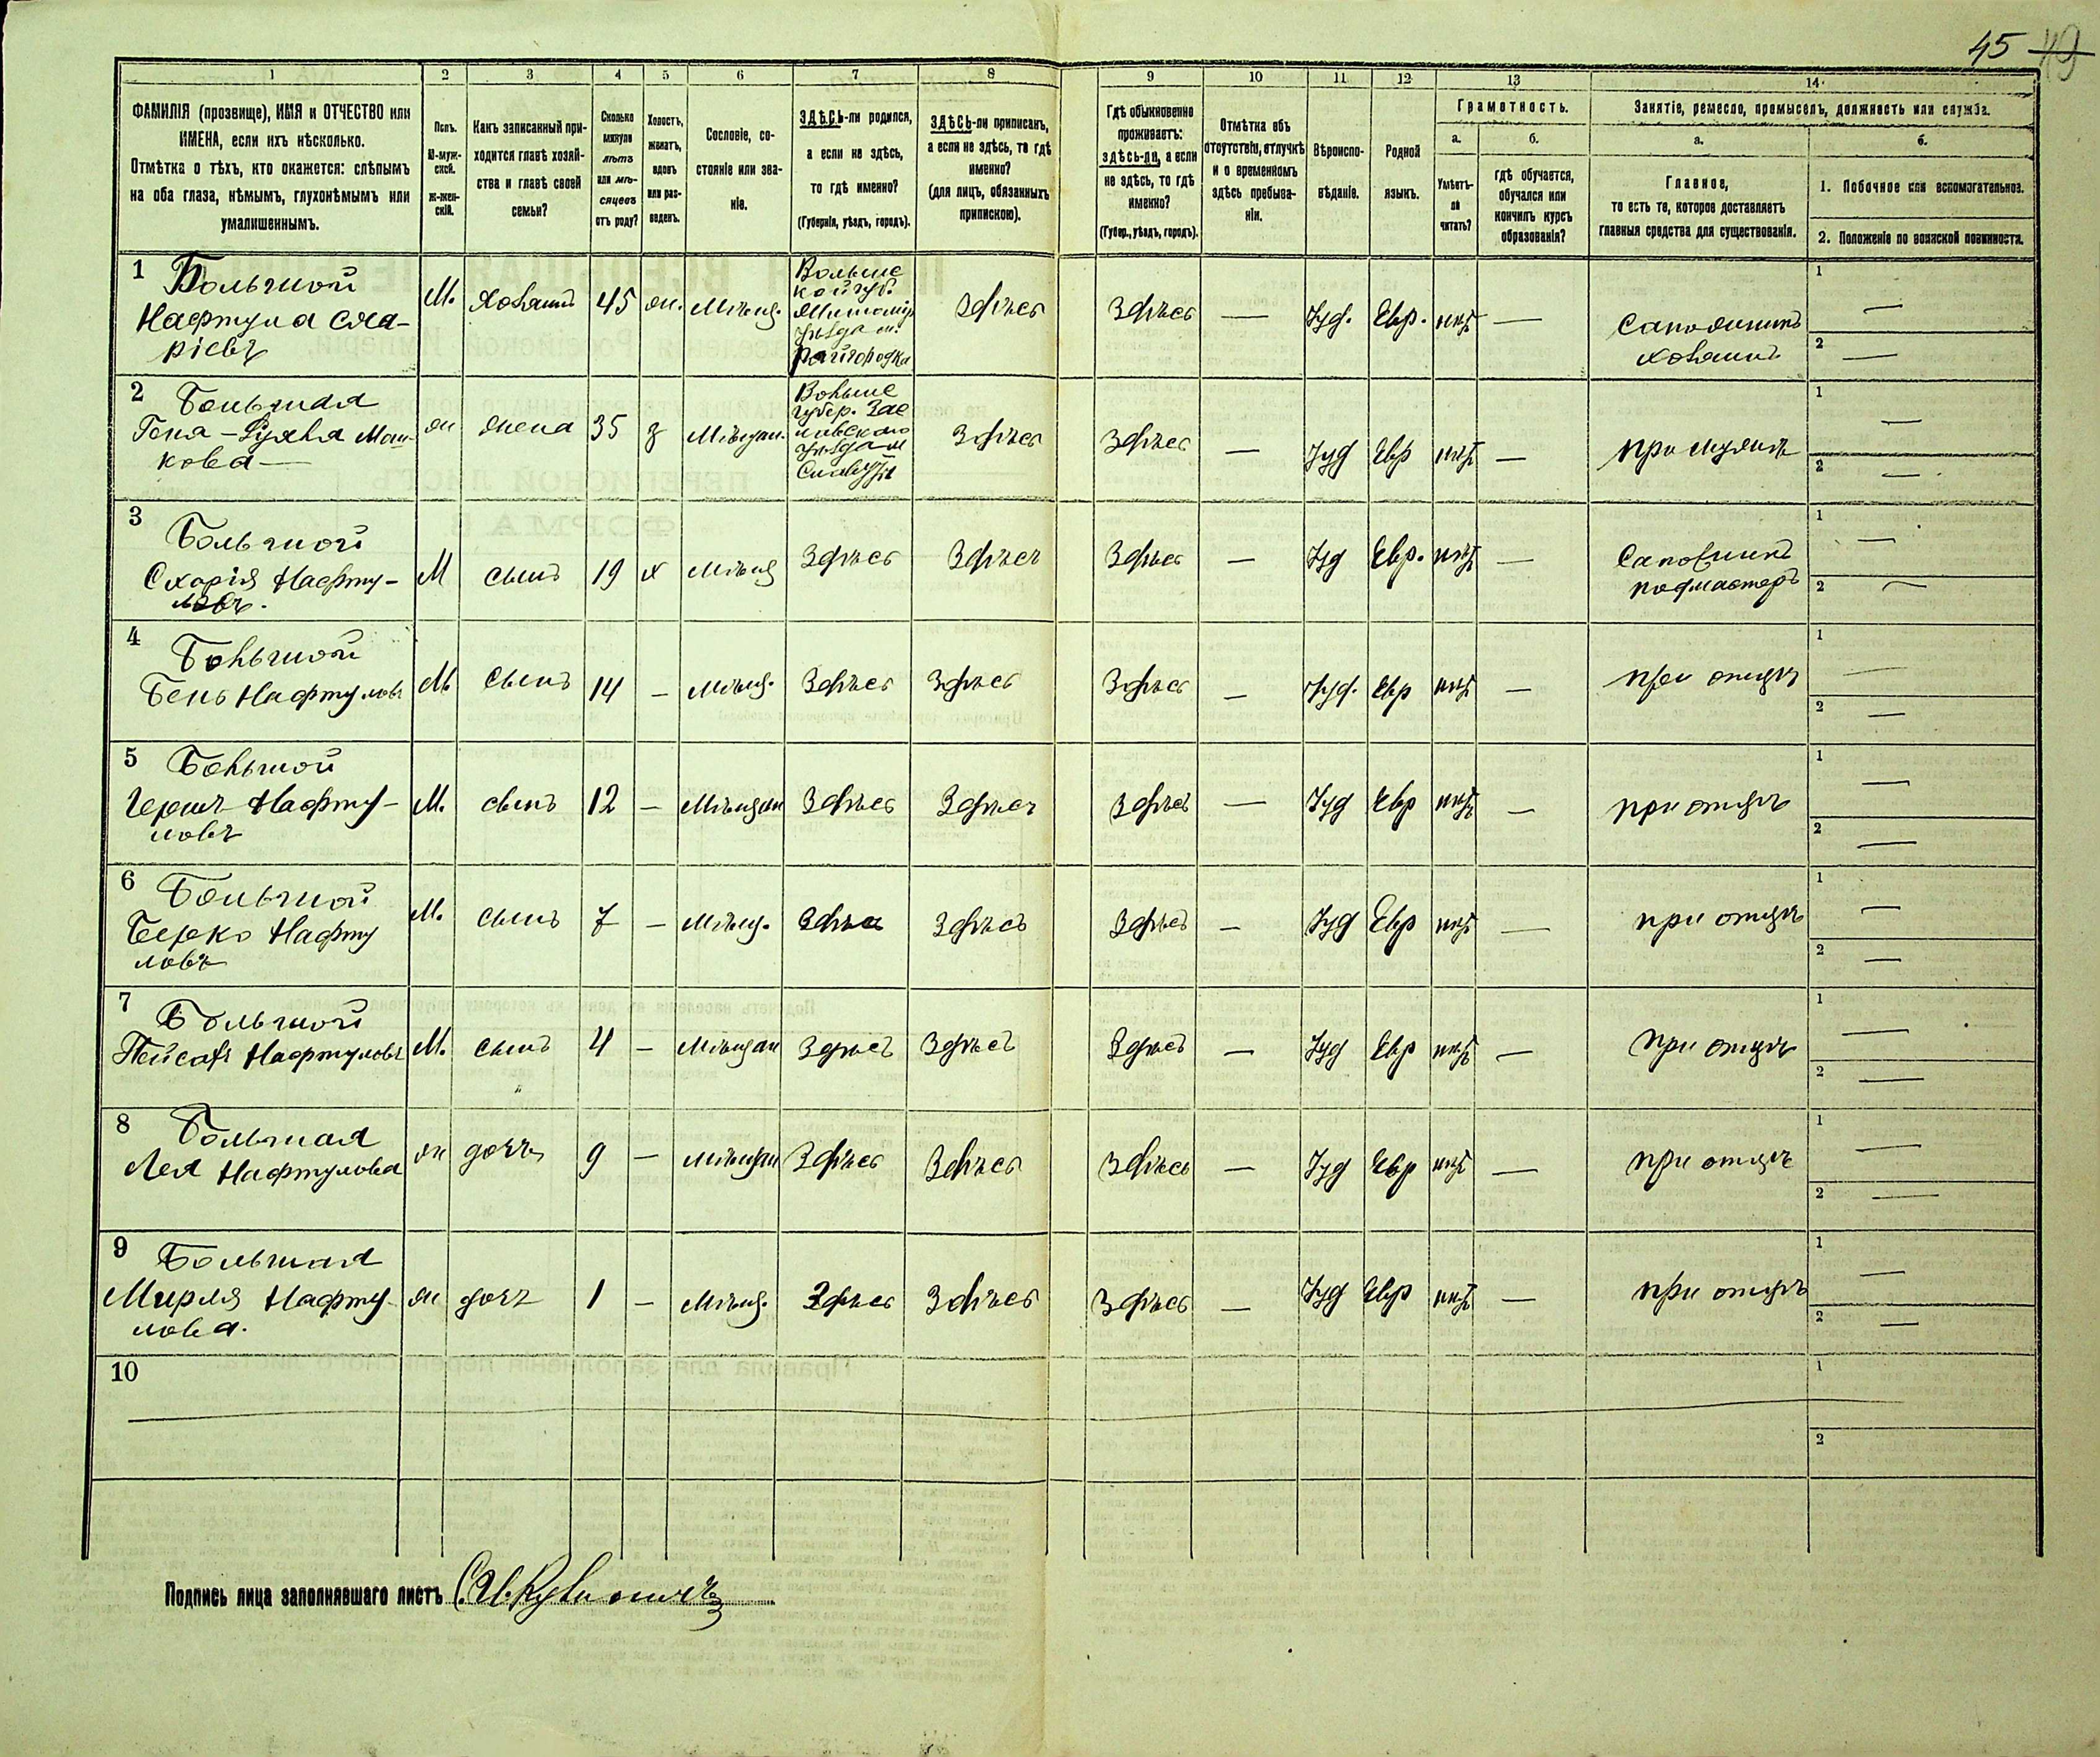 45 49
1 2 3 4 5 6 7 8 9 10 11 12 13 14
ФАМИЛІЯ (прозвище), ИМЯ и ОТЧЕСТВО или
ИМЕНА, если ихъ нѣсколько.
Отмѣтка о тѣхъ, кто окажется: слѣпымъ
на оба глаза, нѣмымъ, глухонѣмымъ или
умалишеннымъ.
Полъ.
М-муж-
ской.
Ж-жен-
скій.
Какъ записанный при-
ходится главѣ хозяй-
ства и главѣ своей
семьи?
Сколько
минуло
лѣтъ
или мѣ-
сяцевъ
отъ роду?
Холостъ,
женатъ,
вдовъ
или раз-
веденъ.
Сословіе, со-
стояніе или зва-
ніе.
ЗДѢСЬ-ли родился,
а если не здѣсь,
то гдѣ именно?
(Губернія, уѣздъ, городъ).
ЗДѢСЬ-ли приписанъ,
а если не здѣсь, то гдѣ
именно?
(для лицъ, обязанныхъ
припискою).
Гдѣ обыкновенно
проживаетъ:
здѣсь-ли, а если
не здѣсь, то гдѣ
именно?
(Губер., уѣздъ, городъ).
Отмѣтка объ
отсутствіи, отлучкѣ
и о временномъ
здѣсь пребыва-
ніи.
Вѣроиспо-
вѣданіе.
Родной
языкъ.
Грамотность.
а.
Умѣетъ-
ли
читать?
б.
гдѣ обучается,
обучался или
кончилъ курсъ
образованія?
Занятіе, ремесло, промыселъ, должность или служба.
а.
Главное,
то есть то, которое доставляетъ
главныя средства для существованія.
б.
1. Побочное или вспомогательное.
2. Положеніе по воинской повинности.
1 Большой
Нафтула
ріевъ
М. хозяинъ 45 ж. мѣщ.
Волынс
кой губ.
Житомір
уѣзда м.
Райгородка
Здѣсь Здѣсь — Іуд. Евр. нѣтъ —
Сапожникъ
хозяинъ
1 —
2 —
2 Большая
кова —
ж жена 35 з мѣщан.
Волынс
губер. Зас
лавскаго
уѣзда м
Славута
Здѣсь Здѣсь — Іуд Евр нѣтъ — при мужѣ
1 —
2 —
3 Большой
Схарія Нафту-
ловъ.
М сынъ 19 х мѣщ Здѣсь Здѣсь Здѣсь — Іуд Евр. нѣтъ —
Сапожникъ
подмастеръ
1 —
2 —
4 Большой
Бень Нафтуловъ
М сынъ 14 — мѣщ. Здѣсь Здѣсь Здѣсь — Іуд. Евр нѣтъ — при отцѣ
1 —
2 —
5 Большой
Гершъ Нафту-
ловъ
М. сынъ 12 — мѣщан Здѣсь Здѣсь Здѣсь — Іуд Евр нѣтъ — при отцѣ
1 —
2 —
6 Большой
Берко Нафту
ловъ
М. сынъ 7 — мѣщ. Здѣсь Здѣсь Здѣсь — Іуд Евр нѣтъ — при отцѣ
1 —
2 —
7 Большой
Пейсахъ Нафтуловъ
М. сынъ 4 — мѣщан Здѣсь Здѣсь Здѣсь — Іуд Евр нѣтъ — при отцѣ
1 —
2 —
8 Большая
Лея Нафтулова
ж дочь 9 — мѣщан Здѣсь Здѣсь Здѣсь — Іуд Евр нѣтъ — при отцѣ
1 —
2 —
9 Большая
Мирля Нафту
лова.
ж дочь 1 — мѣщ. Здѣсь Здѣсь Здѣсь — Іуд Евр нѣтъ — при отцѣ
1 —
2 —
10
1
2
Подпись лица заполнявшаго листъ